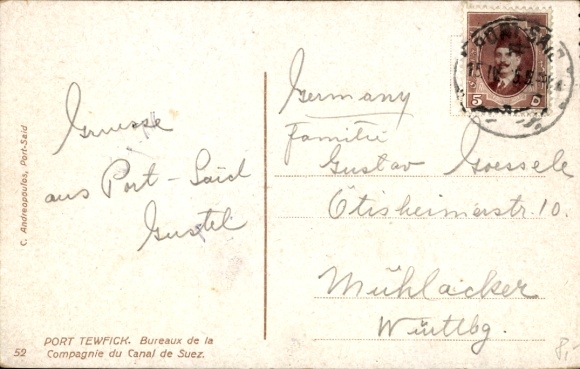 Gruesse
aus Port-Said
Gustel
Germany
Familie
Gustav Goessele
Ötisheimerstr. 10.
Mühlacker
Württbg.
PORT SAID
5
C. Andreopoulos, Port-Said
52
PORT TEWFICK. Bureaux de la
Compagnie du Canal de Suez.
8,-